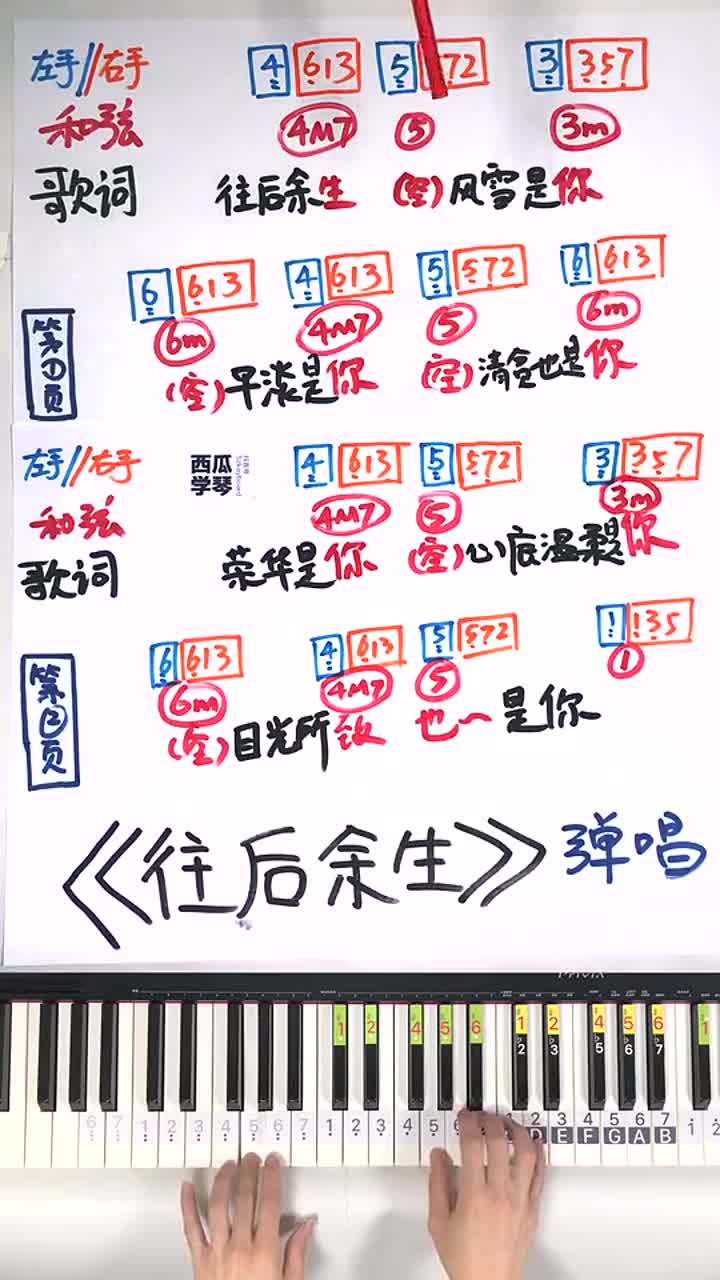 左手//右手 4 613 5 572 3 357
和弦 4M7 5 3m
歌词 往后余生 (空)风雪是你
6 613 4 613 5 572 6 613
6m 4M7 5 6m
(空)平淡是你 (空)清贫也是你
第①页
左手//右手 4 613 5 572 3 357
西瓜学琴
和弦 4M7 5 3m
歌词 荣华是你 (空)心底温柔是你
6 613 4 613 5 572 1 135
6m 4M7 5 1
(空)目光所致 也~是你
第②页
《往后余生》弹唱
1 2 4 5 6 1 2 4 5 6 1
2 3 5 6 7
6 7 1 2 3 4 5 6 7 1 2 3 4 5 6 1 2 3 4 5 6 7 1 2
D E F G A B